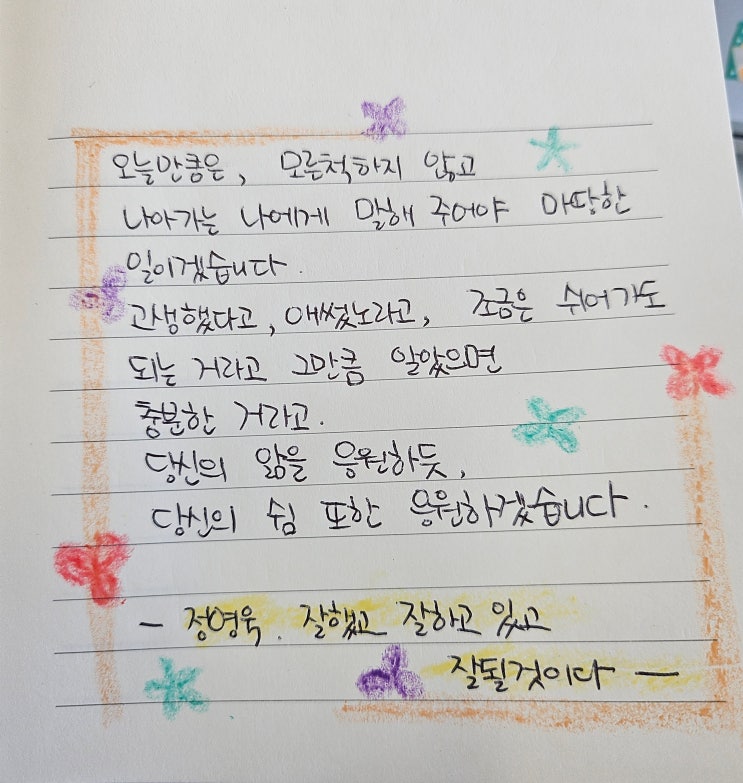 오늘만큼은, 모른척하지 않고
나아가는 나에게 말해 주어야 마땅한
일이겠습니다.
고생했다고, 애썼노라고, 조금은 쉬어가도
되는 거라고 그만큼 알았으면
충분한 거라고.
당신의 앎을 응원하듯,
당신의 쉼 또한 응원하겠습니다.
- 정영욱. 잘했고 잘하고 있고
잘될것이다 -